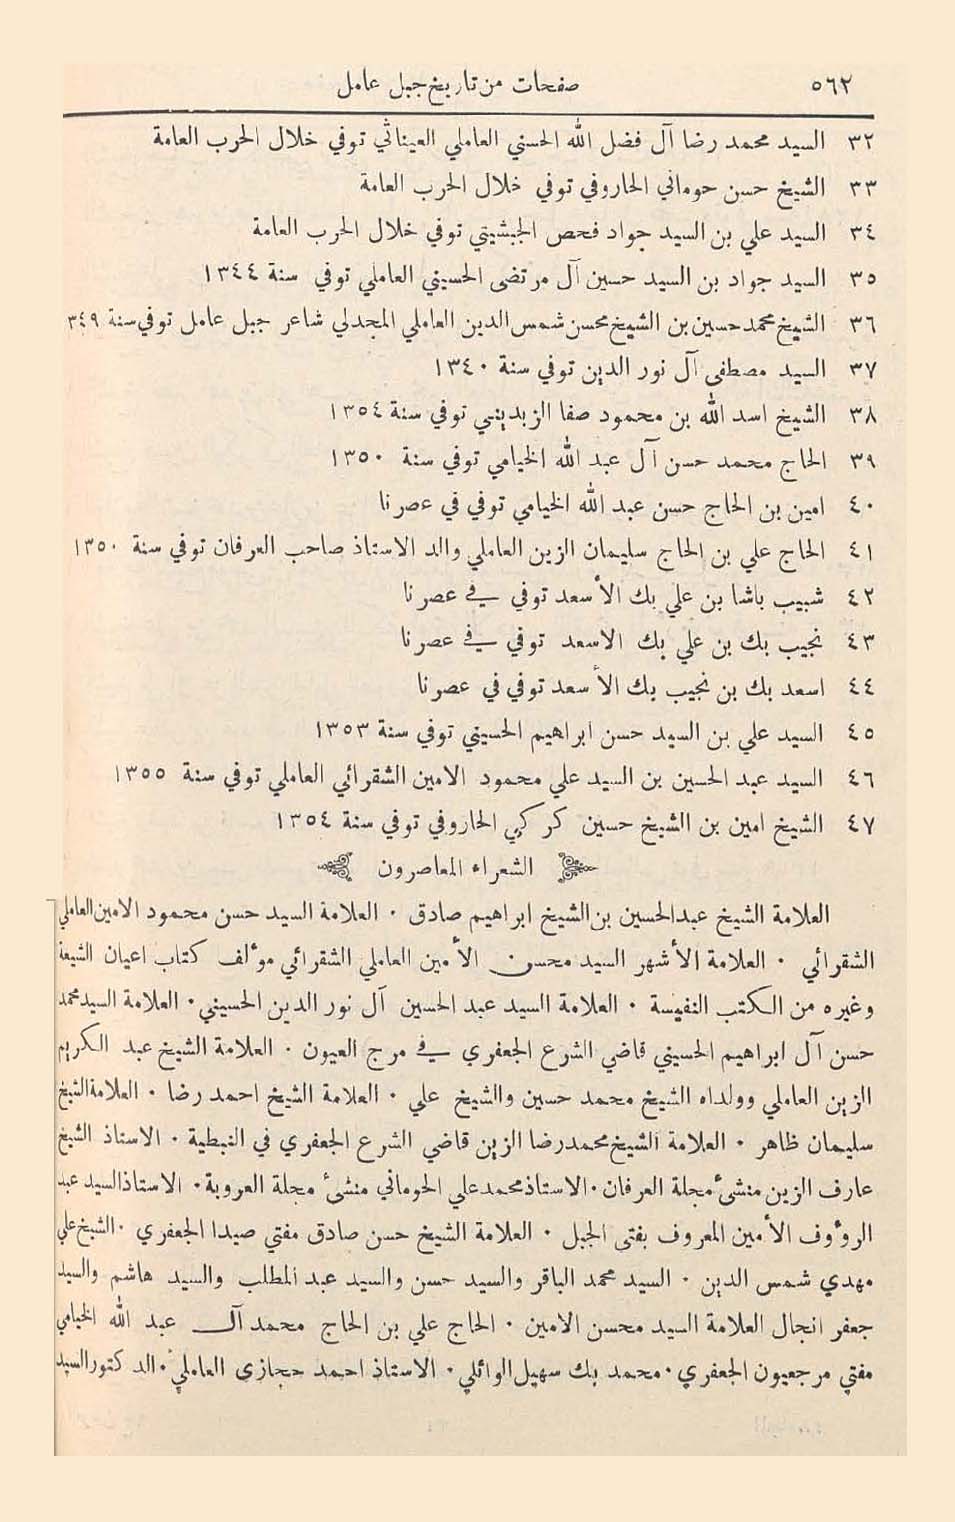 ٥٦٢ صفحات من تاريخ جبل عامل
٣٢ السيد محمد رضا آل فضل الله الحسني العاملي العيناثي توفي خلال الحرب العامة
٣٣ الشيخ حسن حوماني الحاروفي توفي خلال الحرب العامة
٣٤ السيد علي بن السيد جواد فحص الجبشيتي توفي خلال الحرب العامة
٣٥ السيد جواد بن السيد حسين آل مرتضى الحسيني العاملي توفي سنة ١٣٤٤
٣٦ الشيخ محمد حسين بن الشيخ محسن شمس الدين العاملي المجدلي شاعر جبل عامل توفي سنة ٣٤٩
٣٧ السيد مصطفى آل نور الدين توفي سنة ١٣٤٠
٣٨ الشيخ اسد الله بن محمود صفا الزبديني توفي سنة ١٣٥٤
٣٩ الحاج محمد حسن آل عبد الله الخيامي توفي سنة ١٣٥٠
٤٠ امين بن الحاج حسن عبد الله الخيامي توفي في عصرنا
٤١ الحاج علي بن الحاج سليمان الزين العاملي والد الاستاذ صاحب العرفان توفي سنة ١٣٥٠
٤٢ شبيب باشا بن علي بك الأسعد توفي في عصرنا
٤٣ نجيب بك بن علي بك الاسعد توفي في عصرنا
٤٤ اسعد بك بن نجيب بك الأسعد توفي في عصرنا
٤٥ السيد علي بن السيد حسن ابراهيم الحسيني توفي سنة ١٣٥٣
٤٦ السيد عبد الحسين بن السيد علي محمود الامين الشقرائي العاملي توفي سنة ١٣٥٥
٤٧ الشيخ امين بن الشيخ حسين كركي الحاروفي توفي سنة ١٣٥٤
الشعراء المعاصرون
العلامة الشيخ عبد الحسين بن الشيخ ابراهيم صادق . العلامة السيد حسن محمود الامين العاملي
الشقرائي . العلامة الأشهر السيد محسن الأمين العاملي الشقرائي مؤلف كتاب اعيان الشيعة
وغيره من الكتب النفيسة . العلامة السيد عبد الحسين آل نور الدين الحسيني . العلامة السيد محمد
حسن آل ابراهيم الحسيني قاضي الشرع الجعفري في مرج العيون . العلامة الشيخ عبد الكريم
الزين العاملي وولداه الشيخ محمد حسين والشيخ علي . العلامة الشيخ احمد رضا . العلامة الشيخ
سليمان ظاهر . العلامة الشيخ محمد رضا الزين قاضي الشرع الجعفري في النبطية . الاستاذ الشيخ
عارف الزين منشئ مجلة العرفان . الاستاذ محمد علي الحوماني منشئ مجلة العروبة . الاستاذ السيد عبد
الرؤوف الأمين المعروف بفتى الجبل . العلامة الشيخ حسن صادق مفتي صيدا الجعفري . الشيخ علي
مهدي شمس الدين . السيد محمد الباقر والسيد حسن والسيد عبد المطلب والسيد هاشم والسيد
جعفر انجال العلامة السيد محسن الامين . الحاج علي بن الحاج محمد آل عبد الله الخيامي
مفتي مرجعيون الجعفري . محمد بك سهيل الوائلي . الاستاذ احمد حجازي العاملي . الدكتور السيد